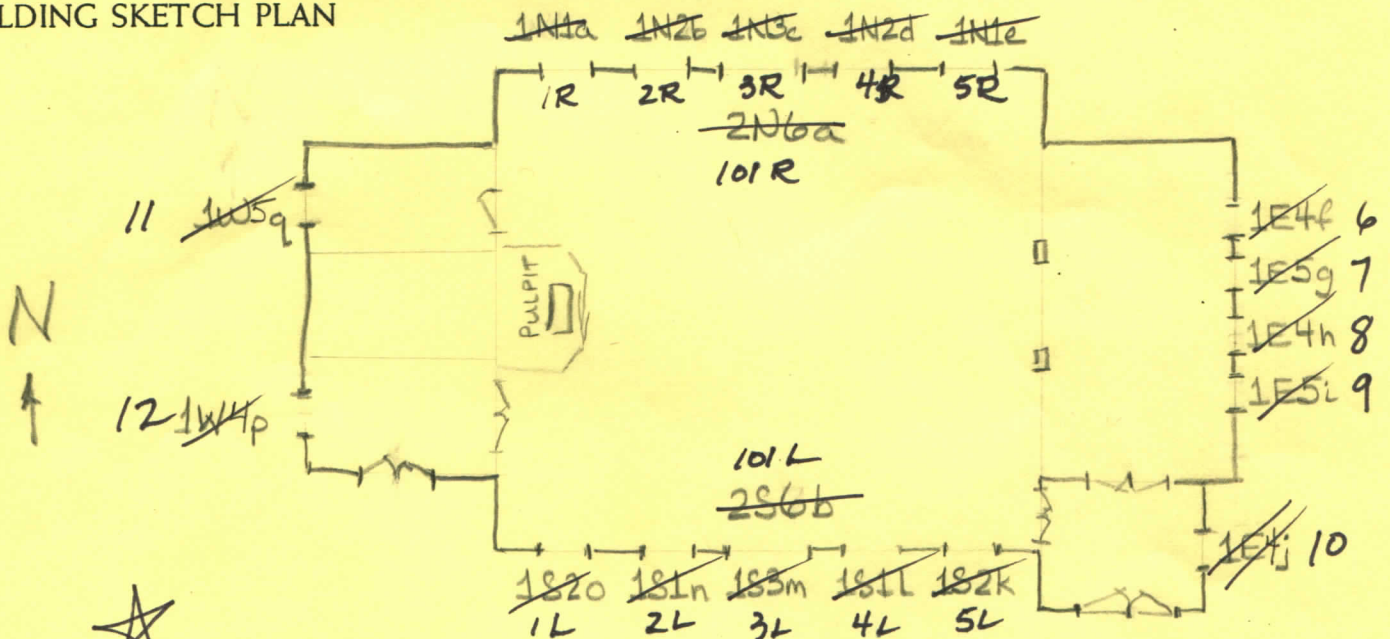 LDING SKETCH PLAN
1N1a 1N2b 1N3c 1N2d 1N1e
1R 2R 3R 4R 5R
2N6a
101 R
11 1W5q
1E4f 6
1E5g 7
PULPIT
N
1E4h 8
1E5i 9
12 1W4p
101 L
2S6b
1E4j 10
1S2o 1S1n 1S3m 1S1l 1S2k
1L 2L 3L 4L 5L